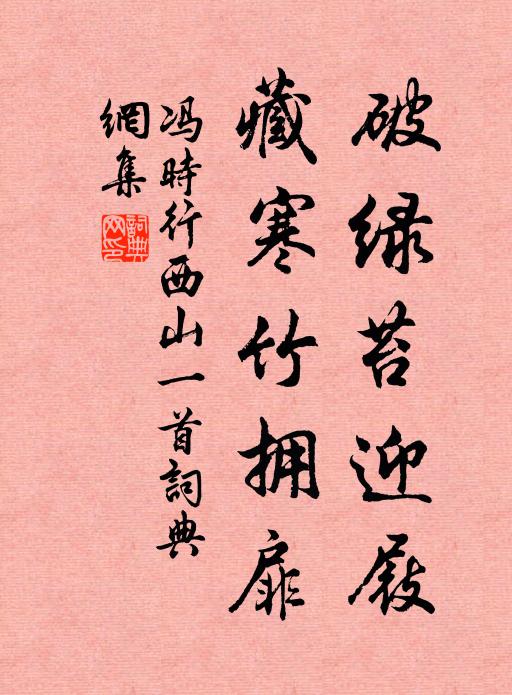 破绿苔迎屐
藏寒竹拥扉
冯時行西山一首詞典
網集
詞典
网印